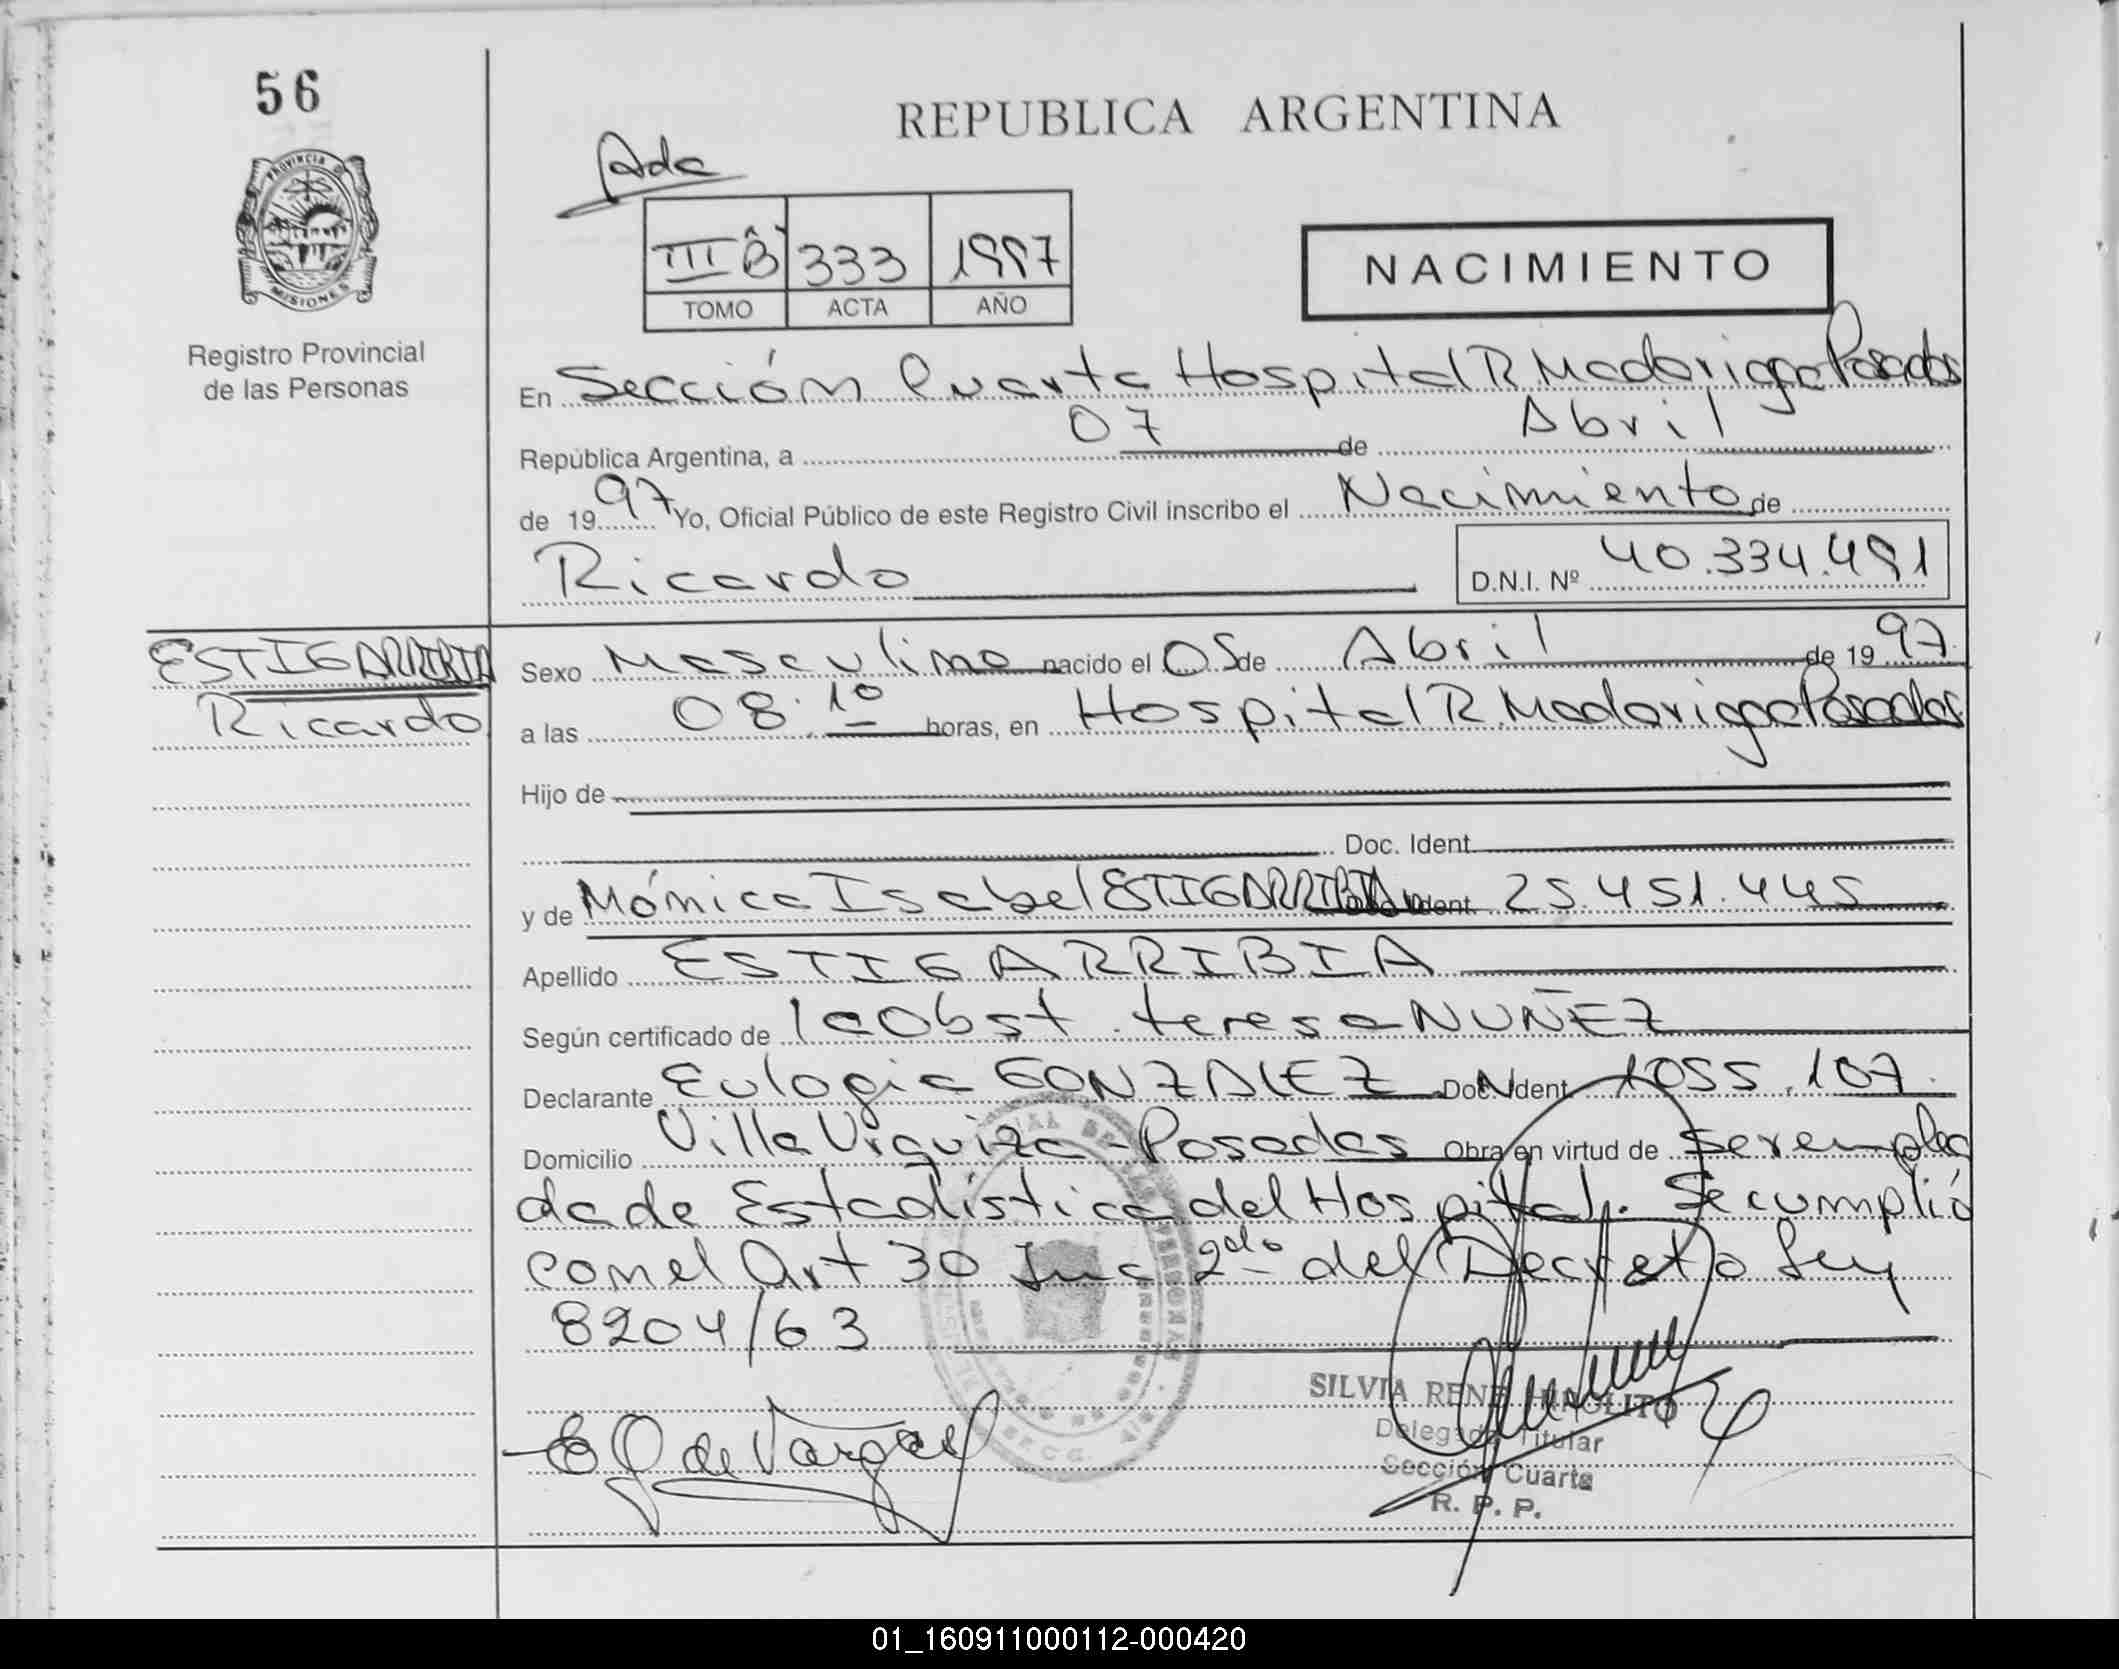 56
REPUBLICA ARGENTINA
PROVINCIA DE
MISIONES
Registro Provincial
de las Personas
III B 333 1997
TOMO ACTA AÑO
NACIMIENTO
En Sección Cuarta Hospital R. Madariaga Posadas
República Argentina, a 07 de Abril
de 1997 Yo, Oficial Público de este Registro Civil inscribo el Nacimiento de
Ricardo D.N.I. Nº 40.334.491
ESTIGARRIBIA
Ricardo
Sexo Masculino nacido el 05 de Abril de 1997
a las 08:10 horas, en Hospital R. Madariaga Posadas
Hijo de
Doc. Ident.
y de Mónica Isabel ESTIGARRIBIA Doc. Ident. 25.451.445
Apellido ESTIGARRIBIA
Según certificado de la Obst. teresa NUÑEZ
Declarante Eulogia GONZALEZ Doc. Ident. 1055.107
Domicilio Villa Urquiza - Posadas Obra en virtud de ser emplea
da de Estadística del Hospital. Se cumplió
con el Art 30 Inc 2do del Decreto Ley
8204/63
E G de Vargas
SILVIA RENE HIPOLITO
Delegada Titular
Sección Cuarta
R. P. P.
01_160911000112-000420